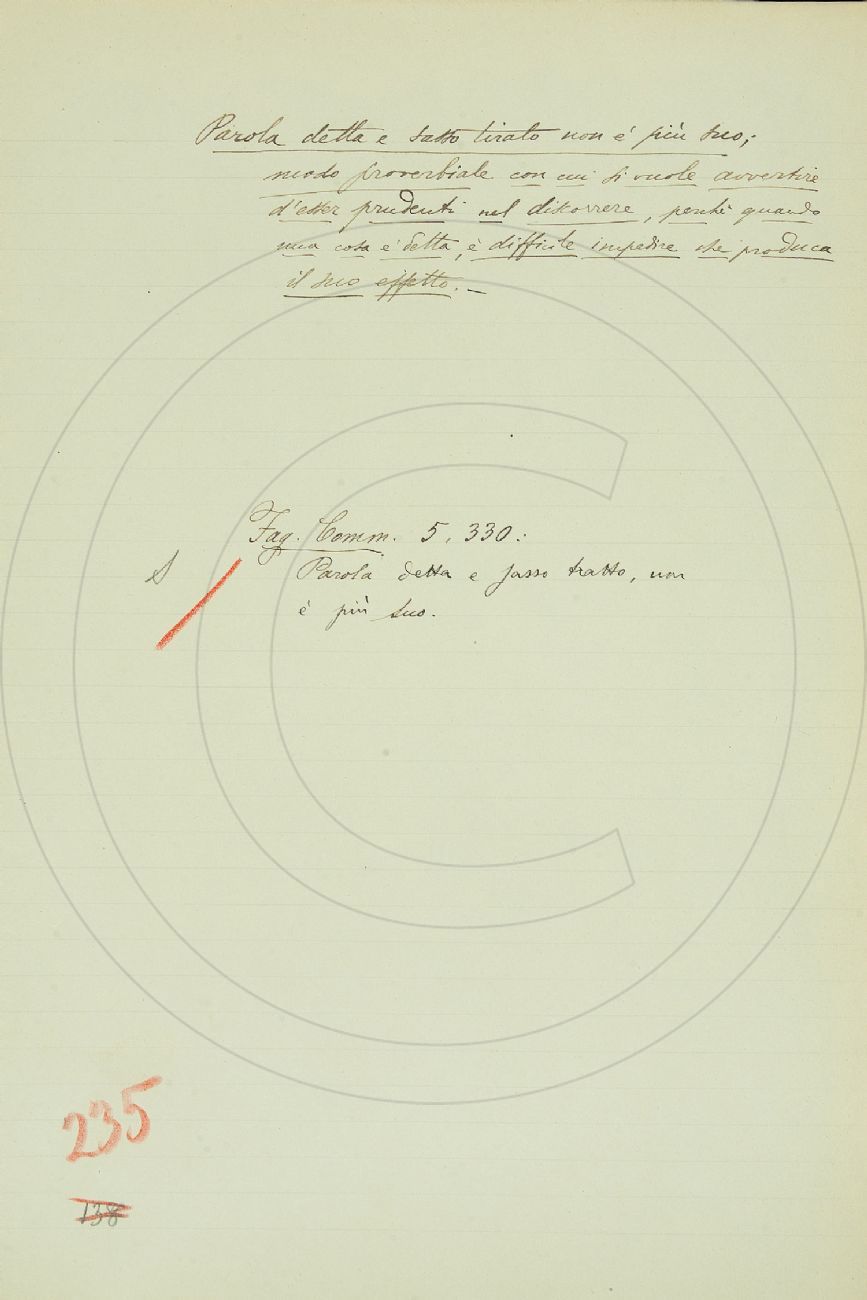 Parola detta e sasso tirato non è più suo;
modo proverbiale con cui si vuole avvertire
d'esser prudenti nel discorrere, perchè quando
una cosa è detta, è difficile impedire che produca
il suo effetto. —
Fag. Comm. 5, 330:
Parola detta e sasso tratto, non
è più suo.
235
138